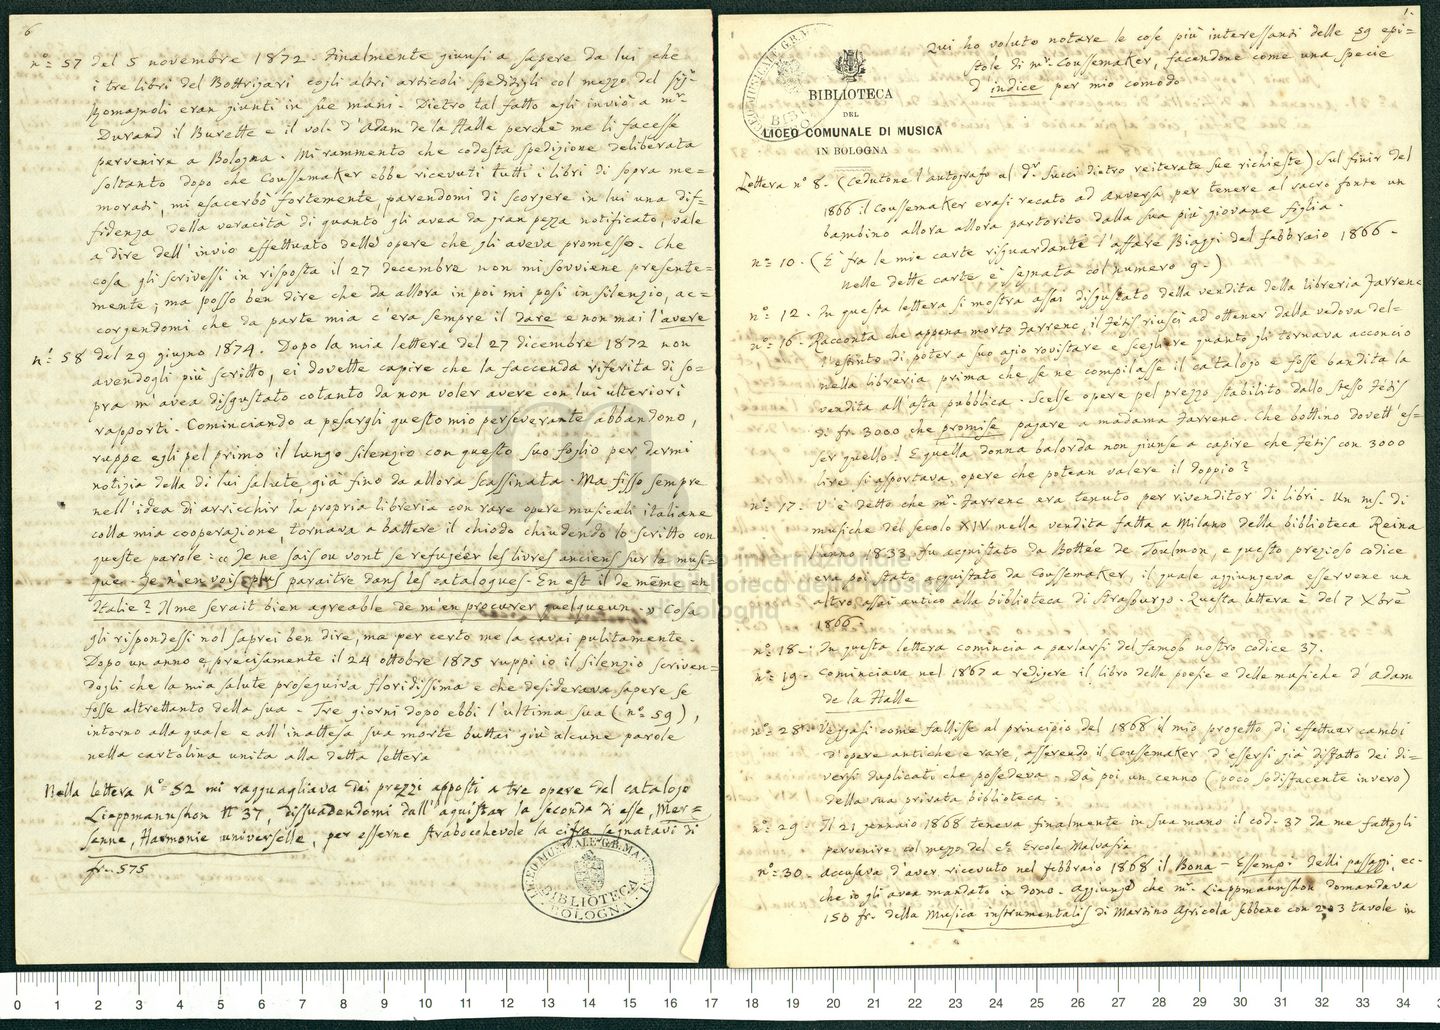 6
nº 57 del 5 novembre 1872. Finalmente giunsi a sapere da lui che
i tre libri del Bottrigari cogli altri articoli speditigli col mezzo del sigr
Romagnoli eran giunti in sue mani. Dietro tal fatto egli inviò a mr.
Durand il Burette e il vol. d'Adam de la Halle perchè me li facesse
pervenire a Bologna. Mi rammento che codesta spedizione deliberata
soltanto dopo che Coussemaker ebbe ricevuti tutti i libri di sopra me=
morati, mi esacerbò fortemente parendomi di scorgere in lui una dif=
fidenza della voracità di quanto gli avea da gran pezza notificato, vale
a dire dell'invio effettuato delle opere che gli aveva promesse. Che
cosa gli scrivessi in risposta il 27 decembre non mi sovviene presente=
mente; ma posso ben dire che da allora in poi mi posi in silenzio, ac=
corgendomi che da parte mia c'era sempre il dare e non mai l'avere
nº 58 del 29 giugno 1874. Dopo la mia lettera del 27 dicembre 1872 non
avendogli più scritto, ei dovette capire che la faccenda riferita di so=
pra m'avea disgustato cotanto da non voler avere con lui ulteriori
rapporti. Cominciando a pesargli questo mio perseverante abbandono,
ruppe egli pel primo il lungo silenzio con questo suo foglio per darmi
notizia della di lui salute già fino da allora scassinata. Ma fisso sempre
nell'idea di arricchir la propria libreria con rare opere musicali italiane
colla mia cooperazione, tornava a battere il chiodo chiudendo lo scritto con
queste parole: « Je ne sais ou vont se refugéer les livres anciens sur la musi=
que. Je n'en vois plus paraitre dans les catalogues. En est il de même en
Italie? Il me serait bien agreable de m'en procurer quelqueun. » Cosa
gli rispondessi nol saprei ben dire, ma per certo me la cavai pulitamente.
Dopo un anno e precisamente il 24 ottobre 1875 ruppi io il silenzio scriven=
dogli che la mia salute proseguiva floridissima e che desiderava sapere se
fosse altrettanto della sua. Tre giorni dopo ebbi l'ultima sua (nº 59),
intorno alla quale e all'inattesa sua morte buttai giù alcune parole
nella cartolina unita alla detta lettera
Nella lettera Nº 52 mi ragguagliava dei prezzi apposti a tre opere del catalogo
Liepmannshon Nº 37, dissuadendomi dall'aquistar la seconda di esse, Mer=
senne, Harmonie universelle, per esserne strabocchevole la cifra segnatavi di
fr. 575
LICEO MUSICALE G.B. MARTINI
BIBLIOTECA
BOLOGNA
1.
Qui ho voluto notare le cose più interessanti delle 59 epi=
stole di mr. Coussemaker, facendone come una specie
d'indice per mio comodo
BIBLIOTECA
DEL
LICEO COMUNALE DI MUSICA
IN BOLOGNA
Lettera nº 8. (Cedutone l'autografo al dr Succi dietro reiterate sue richieste) Sul finir del
1866 il Coussemaker erasi recato ad Anversa per tenere al sacro fonte un
bambino allora allora partorito dalla sua più giovane figlia.
nº 10. (È fra le mie carte risguardante l'affare Biaggi del febbraio 1866.
Nelle dette carte è segnata col numero 9.)
nº 12. In questa lettera si mostra assai disgustato della vendita della libreria Farrenc
nº 16. Racconta che appena morto Farrenc, il Fétis riuscì ad ottener dalla vedova del=
l'estinto di poter a suo agio rovistare e scegliere quanto gli tornava acconcio
nella libreria prima che se ne compilasse il catalogo e fosse bandita la
vendita all'asta pubblica. Scelse opere pel prezzo stabilito dallo stesso Fétis
di fr. 3000 che promise pagare a madama Farrenc. Che bottino dovett'es=
ser quello! E quella donna balorda non giunse a capire che Fétis con 3000
lire si asportava, opere che potean valere il doppio?
nº 17. V'è detto che mr. Farrenc era tenuto per rivenditor di libri. Un ms. di
musiche del secolo XIV. nella vendita fatta a Milano della biblioteca Reina
l'anno 1833 fu acquistato da Bottée de Toulmon, e questo prezioso codice
era poi stato acquistato da Coussemaker, il quale aggiungeva esservene un
altro assai antico alla biblioteca di Strasburgo. Questa lettera è del 7 Xbre
1866.
nº 18. In questa lettera comincia a parlarsi del famoso nostro codice 37.
nº 19. Cominciava nel 1867 a redigere il libro delle poesie e delle musiche d'Adam
de la Halle
nº 28. Veggasi come fallisse al principio del 1868 il mio progetto di effettuar cambi
d'opere antiche e rare, asserendo il Coussemaker d'essersi già disfatto dei di=
versi duplicati che possedeva. Dà poi un cenno (poco sodisfacente invero)
della sua privata biblioteca
nº 29 Il 21 gennaio 1868 teneva finalmente in sua mano il cod. 37 da me fattogli
pervenire col mezzo del ce. Ercole Malvasia
nº 30. Accusava d'aver ricevuto nel febbraio 1868 il Bona - Essempi delli passaggi, ec=
che io gli avea mandato in dono. Aggiunge che mr. Liepmannshon domandava
150 fr. della Musica instrumentalis di Martino Agricola sebbene con 2 o 3 tavole in
museo internazionale
e biblioteca della musica
di bologna
0 1 2 3 4 5 6 7 8 9 10 11 12 13 14 15 16 17 18 19 20 21 22 23 24 25 26 27 28 29 30 31 32 33 34